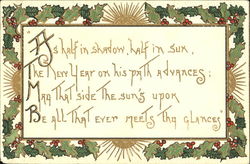 As half in shadow, half in sun,
The New Year on his path advances;
May that side the sun's upon
Be all that ever meets thy glances